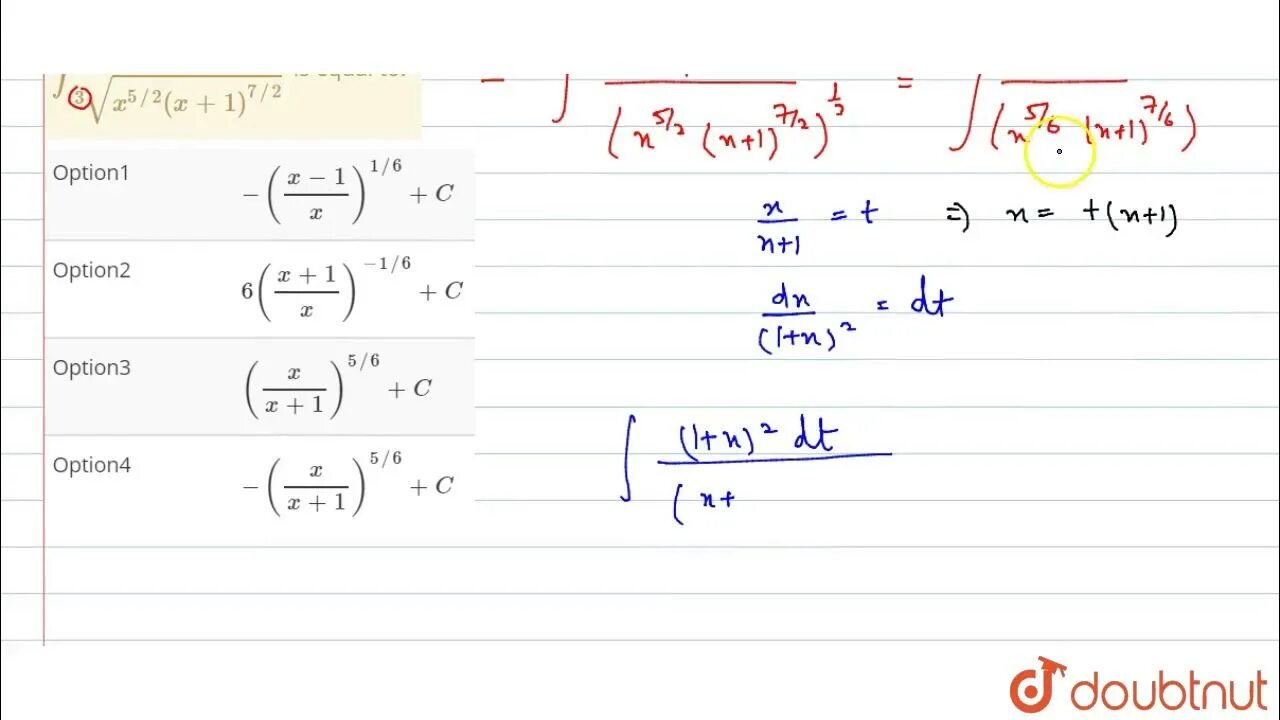 ∛(x^{5/2}(x + 1)^{7/2}) is equal to:
Option1 −((x − 1)/x)^{1/6} + C
Option2 6((x + 1)/x)^{−1/6} + C
Option3 (x/(x + 1))^{5/6} + C
Option4 −(x/(x + 1))^{5/6} + C
− ∫ (x^{5/2} (x+1)^{7/2})^{1/3} = ∫ (x^{5/6} (x+1)^{7/6})
x/(x+1) = t ⇒ x = t(x+1)
dx/(1+x)^2 = dt
∫ (1+x)^2 dt
( x+
doubtnut